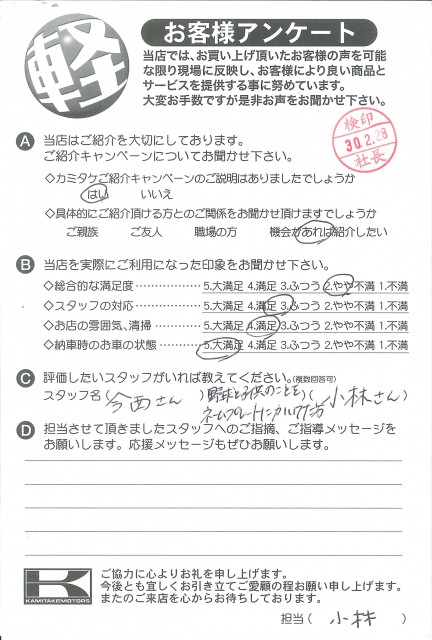 軽
お客様アンケート
当店では、お買い上げ頂いたお客様の声を可能
な限り現場に反映し、お客様により良い商品と
サービスを提供する事に努めています。
大変お手数ですが是非お声をお聞かせ下さい。
検印
30.2.28
社長
A 当店はご紹介を大切にしております。
ご紹介キャンペーンについてお聞かせ下さい。
◇カミタケご紹介キャンペーンのご説明はありましたでしょうか
はい いいえ
◇具体的にご紹介頂ける方とのご関係をお聞かせ頂けますでしょうか
ご親族 ご友人 職場の方 機会があれば紹介したい
B 当店を実際にご利用になった印象をお聞かせ下さい。
◇総合的な満足度……………5.大満足 4.満足 3.ふつう 2.やや不満 1.不満
◇スタッフの対応……………5.大満足 4.満足 3.ふつう 2.やや不満 1.不満
◇お店の雰囲気、清掃………5.大満足 4.満足 3.ふつう 2.やや不満 1.不満
◇納車時のお車の状態………5.大満足 4.満足 3.ふつう 2.やや不満 1.不満
C 評価したいスタッフがいれば教えてください。(複数回答可)
スタッフ名(今西さん)野球と子供のことを(小林さん)
ネームプレートに
D 担当させて頂きましたスタッフへのご指摘、ご指導メッセージを
お願いします。応援メッセージもぜひお願いします。
KAMITAKEMOTORS
ご協力に心よりお礼を申し上げます。
今後とも宜しくお引き立てご愛顧の程お願い申し上げます。
またのご来店を心からお待ちしております。
担当(小林)